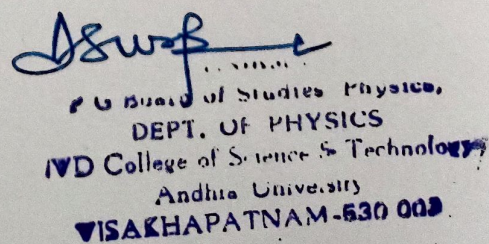 P G Board of Studies Physics,
DEPT. OF PHYSICS
College of Science & Technology,
Andhra University
VISAKHAPATNAM-530 003